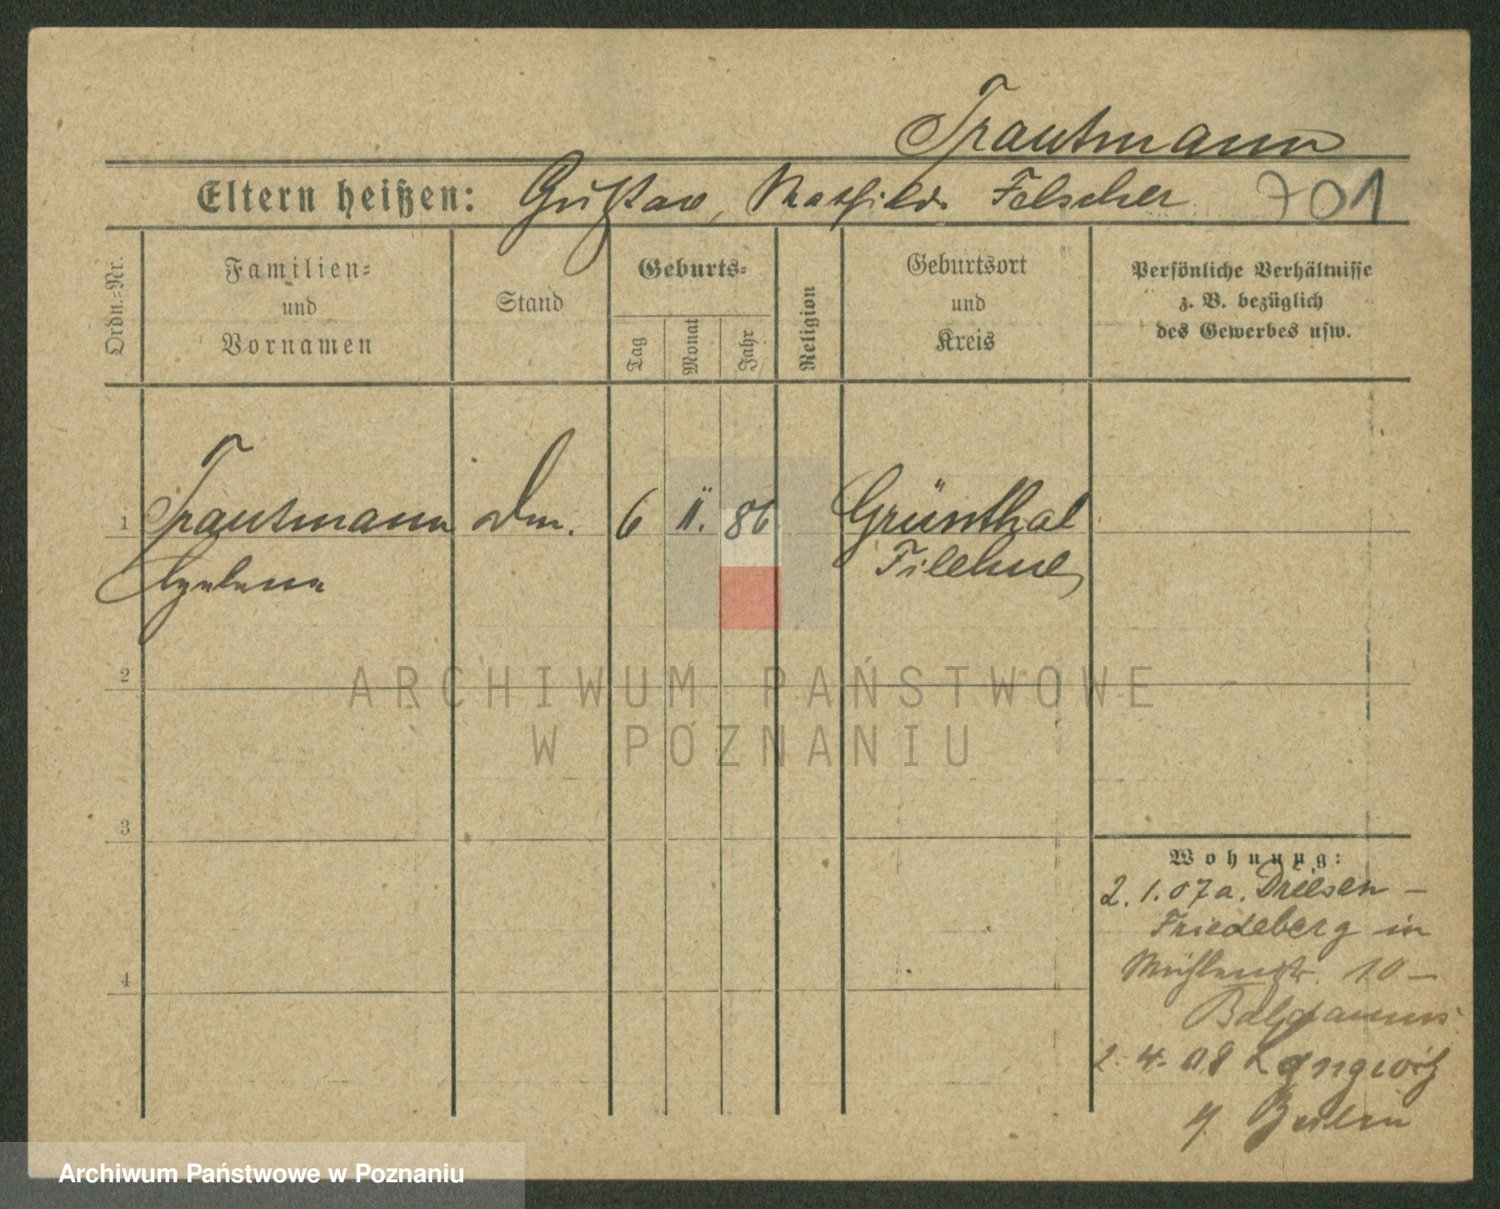 Trautmann
Eltern heißen: Gustav, Mathilde Felscher 701
Ordn.=Nr.
Familien=
und
Vornamen
Stand
Geburts=
Tag
Monat
Jahr
Religion
Geburtsort
und
Kreis
Persönliche Verhältnisse
z. B. bezüglich
des Gewerbes usw.
1 Trautmann 6 11. 86 Grünthal
Filehne
2
3
4
Wohnung:
2. 1. 07 a. Driesen –
Friedeberg in
Mühlenstr. 10 –
2. 4. 08 Langwitz
Berlin
ARCHIWUM PAŃSTWOWE
W POZNANIU
Archiwum Państwowe w Poznaniu